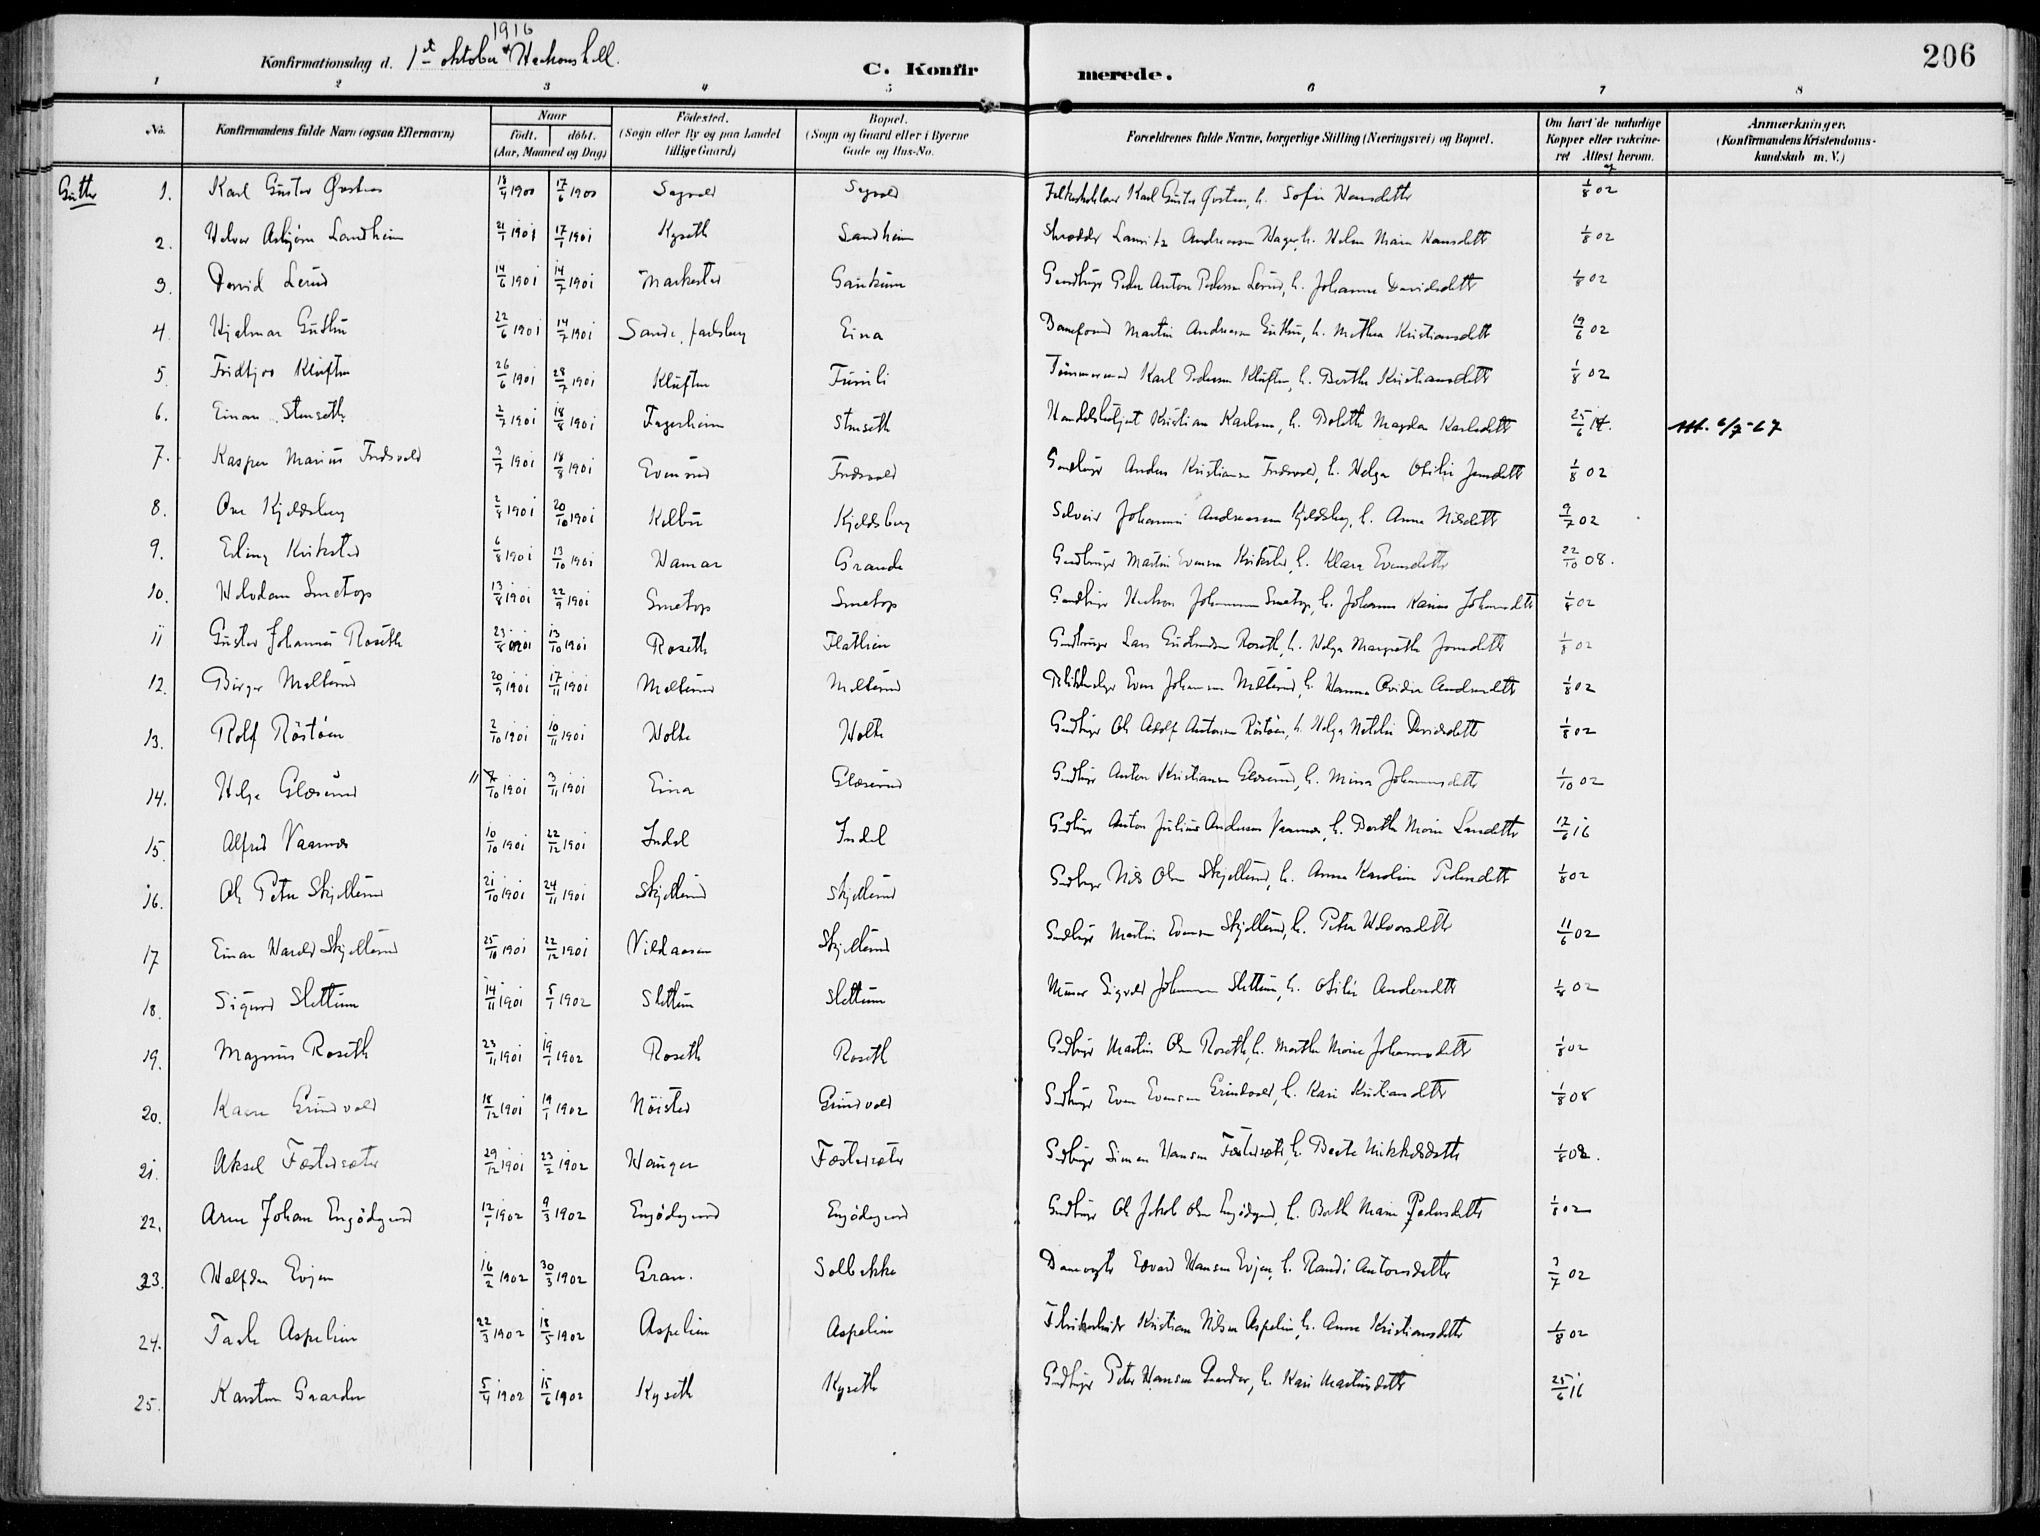 1916
Konfirmationsdag d. 1st oktober
C. Konfirmerede.
206
1 2 3 4 5 6 7 8
No.
Konfirmandens fulde Navn (ogsaa Efternavn)
Naar
födt. döbt.
(Aar, Maaned og Dag)
Födested.
(Sogn eller By og paa Landet tillige Gaard)
Bopæl.
(Sogn og Gaard eller i Byerne Gade og Hus-No.
Forældrenes fulde Navne, borgerlige Stilling (Næringsvei) og Bopæl.
Om havt de naturlige Kopper eller vakcineret Attest herom.
Anmærkninger.
(Konfirmandens Kristendomskundskab m. V.)
Gutter 1. Karl Gustav 18/4 1900 17/6 1900 Karl Gustav h. Sofie Hansdatter 1/8 02
2. Halvor Asbjørn Sandheim 21/1 1901 17/1901 Kyseth Sandheim Skrædder Lauritz Andreassen h. Helene Marie Hansdatter 1/8 02
3. David Lerud 14/6 1901 14/7 1901 Markestad Gaukum Gaardbruger Peder Anton Pedersen Lerud, h. Johanne Davidsdatter 1/8 02
4. Hjalmar Guthu 22/6 1901 14/7 1901 Sande, Jarlsberg Eina Baneformand Martin Andreassen Guthu, h. Mathea Kristiansdatter 19/6 02
5. Fridtjov Kluften 26/6 1901 28/7 1901 Kluften Furuli Tømmermand Karl Pedersen Kluften, h. Berthe Kristiansdatter 1/8 02
6. Einar Stenseth 2/7 1901 18/8 1901 Fagerheim Stenseth Kristian Karlsen, h. Bolette Magda Karlsdatter 25/6 14. Att. 6/7-67
7. Kasper Marius Fredsvold 3/7 1901 18/8 1901 Evenrud Fredsvold Gaardbruger Anders Kristiansen Fredsvold, h. Helga Otilie Jensdatter 1/8 02
8. Ove Kjeldsberg 2/8 1901 20/10 1901 Kolbu Kjeldsberg Selveier Johannes Andreassen Kjeldsberg, h. Anne Nilsdatter 9/7 02
9. Erling Kvikstad 6/8 1901 13/10 1901 Hamar Grande Gaardbruger Martin Evensen Kvikstad, h. Klara Evensdatter 22/10 08.
10. Halvdan Smetop 13/8 1901 22/9 1901 Smetop Smetop Gaardbruger Haakon Johannesen Smetop, h. Johanne Karine Johannesdatter 1/8 02
11 Gustav Johannes Roseth 23/8 1901 13/10 1901 Roseth Flatlien Gaardbruger Lars Gudbrandsen Roseth, h. Helga Margrethe Jonsdatter 1/8 02
12. Birger Melbund 20/9 1901 17/11 1901 Even Johansen h. Hanna Ovidia Andersdatter 1/8 02
13. Rolf Röstöen 2/10 1901 10/11 1901 Holte Holte Gaardbruger Ole Adolf Antonsen Röstöen, h. Helga Natalie Davidsdatter 1/8 02
14. Helge Glæserud 11 7/10 1901 3/11 1901 Eina Glæserud Gaardbruger Anton Kristiansen Glæserud, h. Mina Johannesdatter 1/10 02
15. Alfred Vaarnæs 10/10 1901 22/12 1901 Indal Indal Gaardbruger Anton Julius Andersen Vaarnæs, h. Berthe Marie Larsdatter 17/6 16
16. Ole Peter Skjellerud 21/10 1901 24/11 1901 Skjellerud Skjellerud Gaardbruger Nils Olsen Skjellerud, h. Anne Karoline Pedersdatter 1/8 02
17 Einar Harald Skjellerud 25/10 1901 22/12 1901 Vildaasen Skjellerud Gaardbruger Martin Evensen Skjellerud, h. Petra Halvorsdatter 11/6 02
18. Sigurd Slettum 14/11 1901 5/1 1902 Slettum Slettum Murer Sigvald Johannesen Slettum, h. Otilie Andersdatter 1/8 02
19. Magnus Roseth 23/11 1901 19/1 1902 Roseth Roseth Gaardbruger Martin Olsen Roseth, h. Marthe Marie Johannesdatter 1/8 02
20. Kaare Grindvold 18/12 1901 19/1 1902 Nöisted Grindvold Gaardbruger Even Evensen Grindvold, h. Kari Kristiansdatter 1/8 08
21. Aksel Fæstersæter 29/12 1901 23/2 1902 Hauger Fæstersæter Gaardbruger Simen Hansen Fæstersæter, h. Beate Mikkelsdatter 1/8 02.
22. Arne Johan Engödegaard 12/1 1902 9/3 1902 Engödegaard Engödegaard Gaardbruger Ole Jakob Olsen Engödegaard, h. Berthe Marie Pedersdatter 1/8 02
23. Halfdan Evjen 16/2 1902 30/3 1902 Gran. Solbakke Banevogter Edvard Hansen Evjen, h. Randi Antonsdatter 3/7 02
24. Aspelien 22/3 1902 18/5 1902 Aspelien Aspelien Kristian Nilsen Aspelien, h. Anne Kristiansdatter 1/8 02
25. Karsten Gaarder 5/4 1902 15/6 1902 Kyseth Kyseth Gaardbruger Peter Hansen Gaarder, h. Kari Martinsdatter 25/6 16